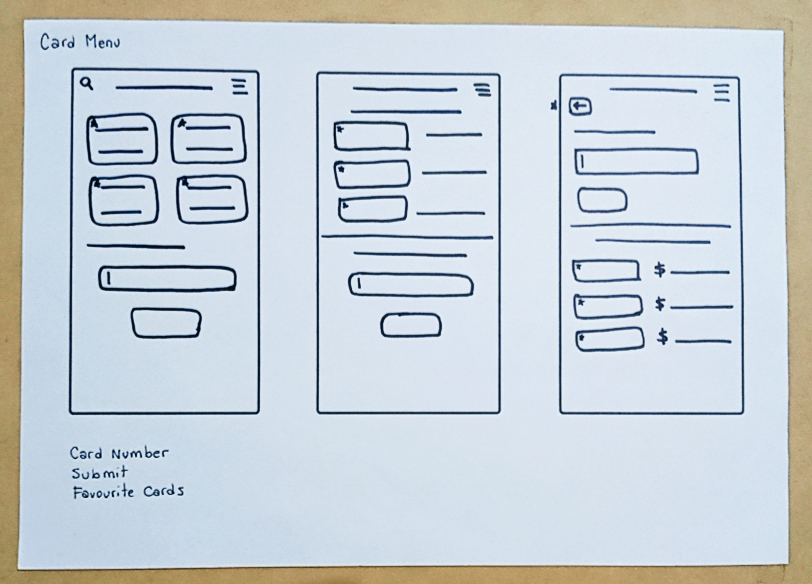 Card Menu
$
$
$
Card Number
Submit
Favourite Cards